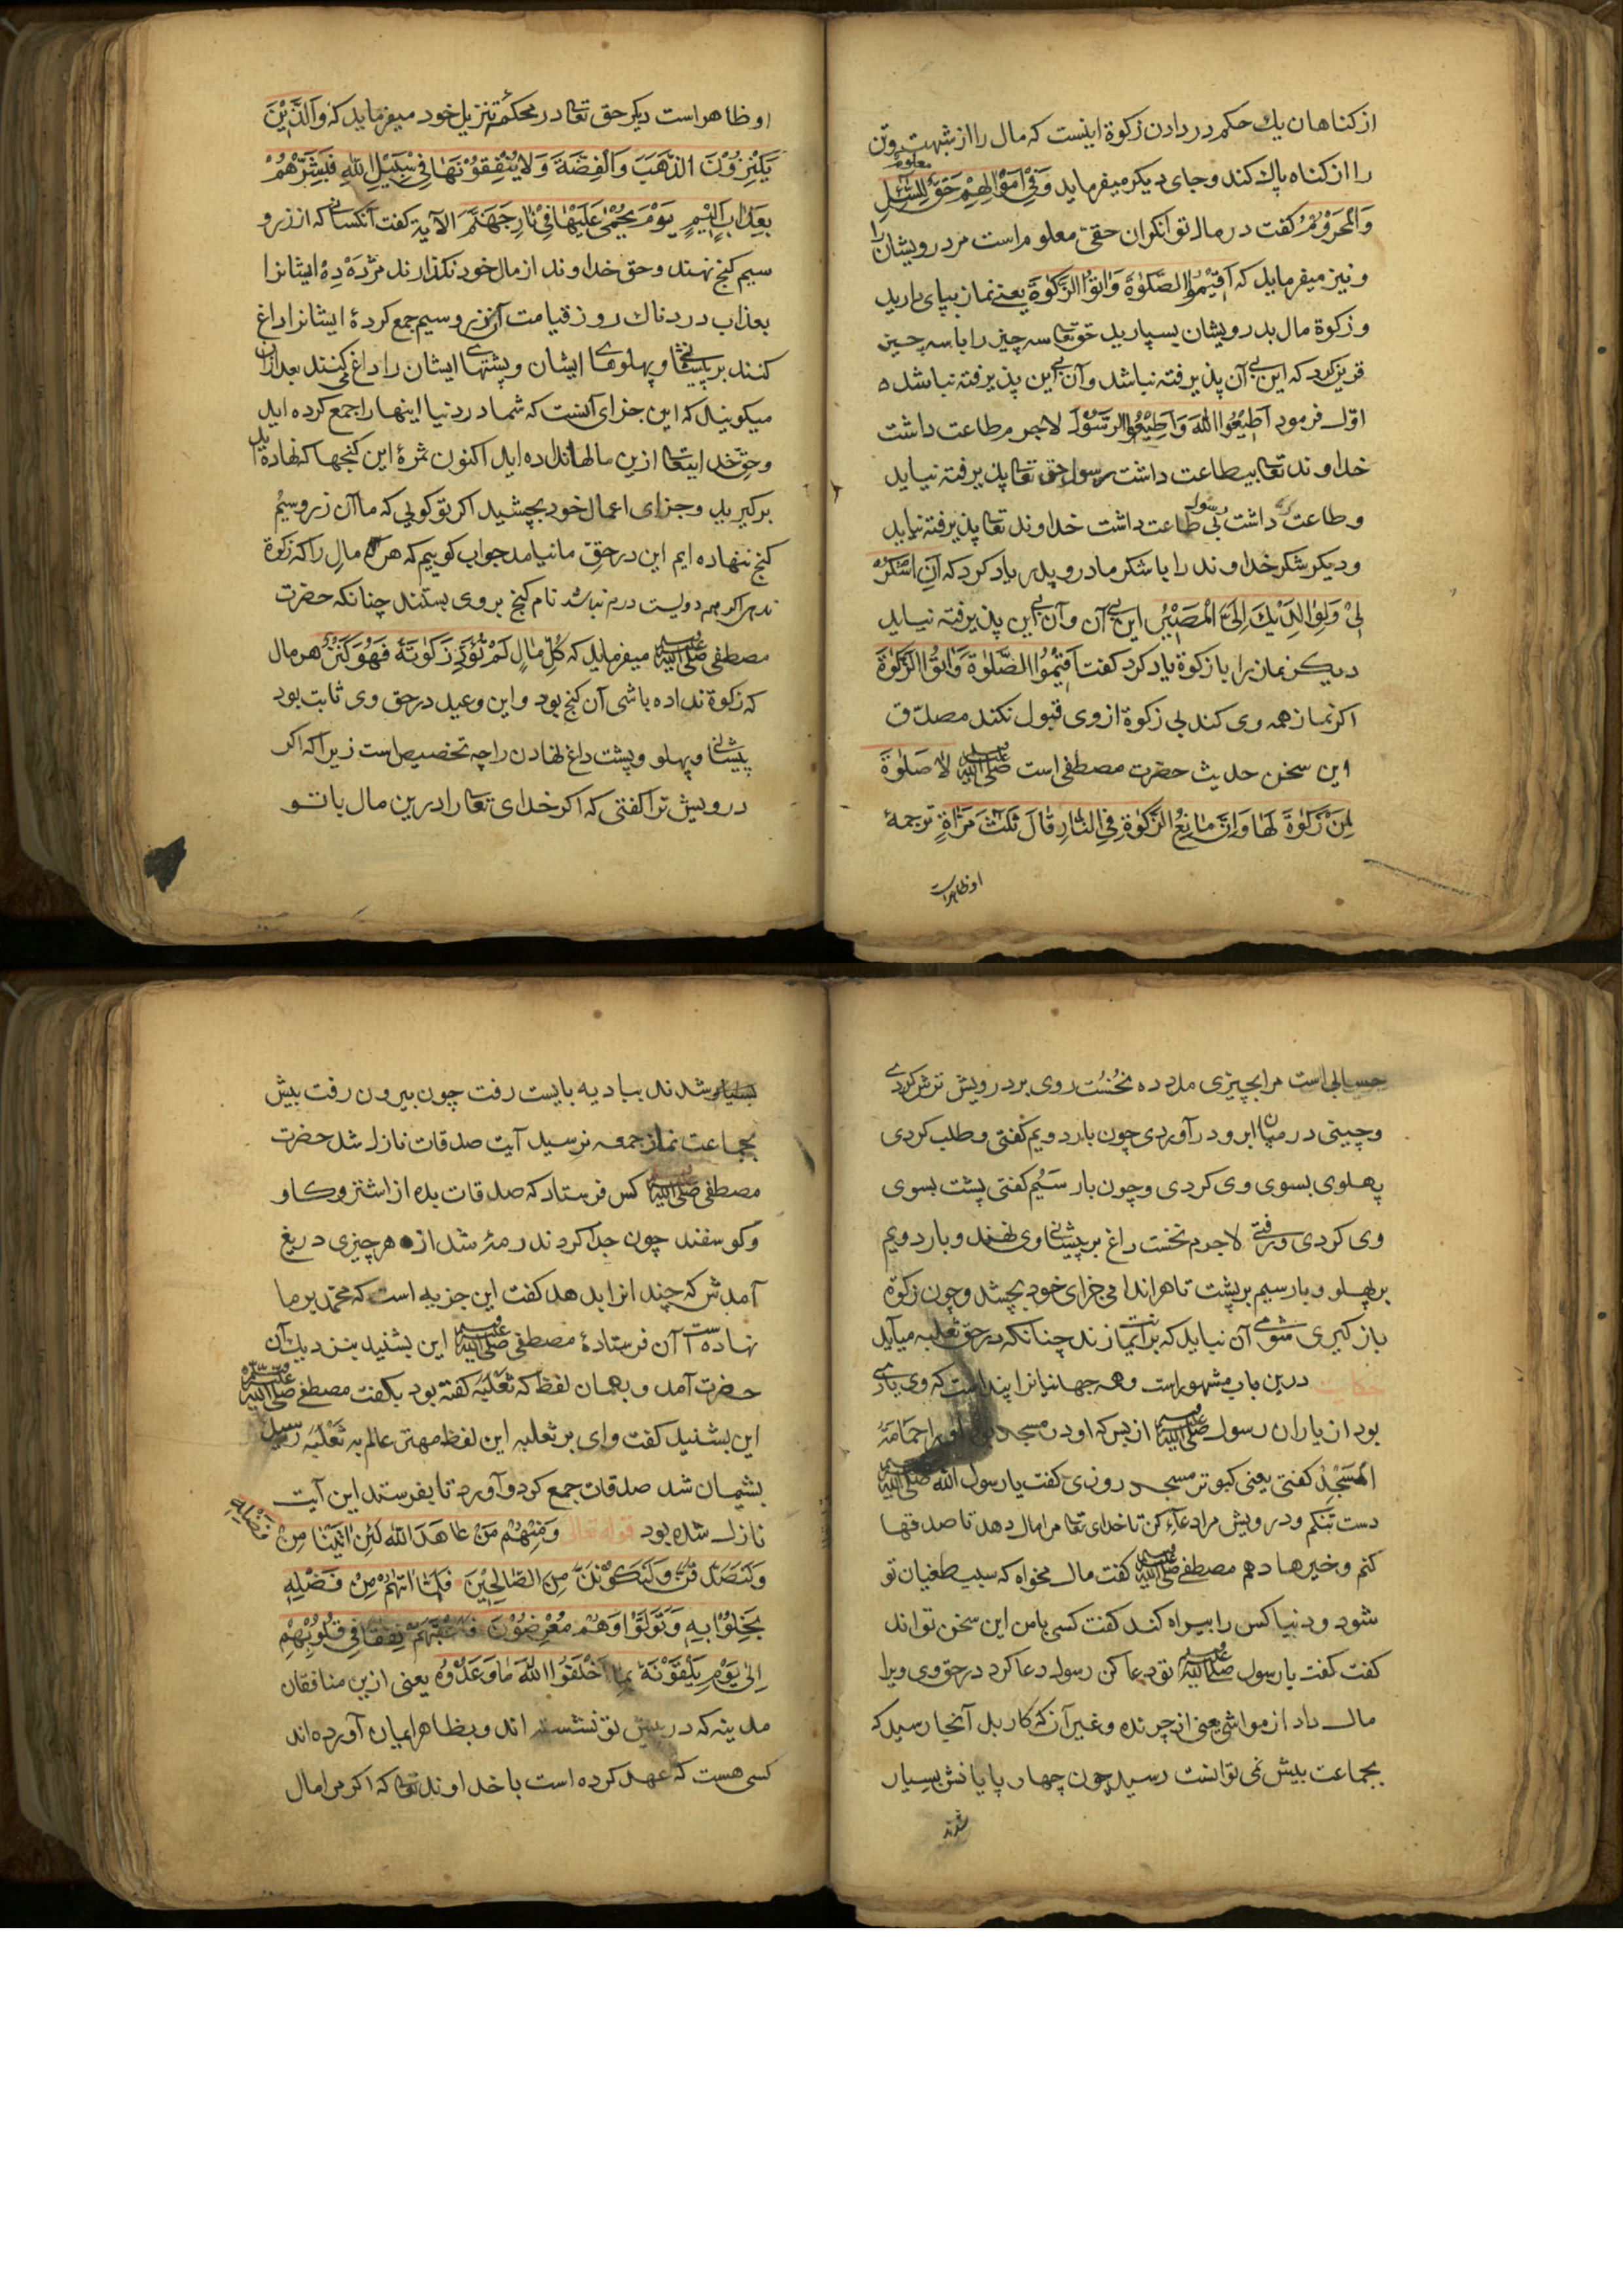 از کناهان یك حکم در دادن زکوة اینست که مال را از شبهت وتن
را از کناه پاك کند وجای دیکر میفرماید وَفِیْ اَمْوَالِهِمْ حَقٌّ معلوم لِلسَّائِلِ
وَالْمَحْرُوْمِ کفت در مال توانکران حقی معلوم است مر درویشان را
ونیز میفرماید که اَقِیْمُوا الصَّلٰوةَ وَاٰتُوا الزَّکٰوةَ یعنے نماز بپای دارید
وزکوة مال بدرویشان بسپارید حق تعا سه چیز را با سه چیز
قرین کرد که این بی آن پذیرفته نباشد وآن بی این پذیرفته نباشد
اوّل فرمود اَطِیْعُوا اللّٰهَ وَاَطِیْعُوا الرَّسُوْلَ لاجرم طاعت داشت
خداوند تعا بیطاعت داشت رسول حق تعا پذیرفته نیاید
وطاعت داشت رسول بی طاعت داشت خداوند تعا پذیرفته نیاید
ودیکر شکر خداوند را با شکر مادر وپدر یاد کرد که اَنِ اشْکُرْ
لِیْ وَلِوَالِدَیْكَ اِلَیَّ الْمَصِیْرُ این بی آن وآن بی این پذیرفته نیاید
دیکر نماز را با زکوة یاد کرد کفت اَقِیْمُوا الصَّلٰوةَ وَاٰتُوا الزَّکٰوةَ
اکر نماز همه وی کند بی زکوة از وی قبول نکند مصدّق
این سخن حدیث حضرت مصطفی است صلى الله عليه وسلم لَا صَلٰوةَ
لِمَنْ زَکٰوةَ لَهَا وَاِنَّ مَانِعُ الزَّکٰوةِ فِی النَّارِ قَالَ ثَلٰثَ مَرَّاةٍ ترجمهٔ
او ظاهراست
او ظاهر است دیکر حق تعا در محکم تنزیل خود میفرماید که وَالَّذِیْنَ
یَکْنِزُوْنَ الذَّهَبَ وَالْفِضَّةَ وَلَا یُنْفِقُوْنَهَا فِیْ سَبِیْلِ اللّٰهِ فَبَشِّرْهُمْ
بِعَذَابٍ اَلِیْمٍ یَوْمَ یُحْمٰی عَلَیْهَا فِیْ نَارِ جَهَنَّمَ الآیة کفت آنکسانی که از زر و
سیم کنج نهند وحق خداوند از مال خود نکذارند مژده دِهْ ایشانرا
بعذاب دردناك روز قیامت آن زر وسیم جمع کردهٔ ایشانرا داغ
کنند بر پیشانی وپهلوهاے ایشان وپشتهاے ایشان را داغ می کنند بعد ازان
میکویند که این جزای آنست که شما در دنیا اینها را جمع کرده اید
وحق خدایتعا ازین مالها نداده اید اکنون ثمرهٔ این کنجها که نهاده اید
برکیرید وجزای اعمال خود بچشید اکر تو کویی که ما آن زر وسیم
کنج ننهاده ایم این در حقِ ما نیامد جواب کوییم که هر مالِ را که زکوة
ندهی اکر همه دویست درم نباشد نام کنج بروی بستند چنانکه حضرت
مصطفی صلى الله عليه وسلم میفرماید که کُلُّ مَالٍ لَمْ تُؤَدِّ زَکٰوتَهُ فَهُوَ کَنْزٌ هر مال
که زکوة نداده باشی آن کنج بود واین وعید در حق وی ثابت بود
پیشانی وپهلو وپشت داغ نهادن را چه تخصیص است زیراکه اکر
درویش ترا کفتی که اکر خدای تعا را درین مال با تو
حسابی است مرا بچیزی مدد ده نخست روی بر درویش ترش کردی
وچینی در میان ابرو درآوردی چون بار دویم کفتی وطلب کردی
پهلوی بسوی وی کردی وچون بار سَیُم کفتی پشت بسوی
وی کردی ورفتی لاجرم نخست داغ بر پیشانی وی نهند وبار دویم
بر پهلو وبار سیم بر پشت تا هر اندامی جزای خود بچشد وچون زکوة
باز کیری شومی آن نباید که برایمانت زند چنانکه در حق ثعلبه میآید
حکایت درین باب مشهور است وهمه جهانیانرا پند است که وی یاری
بود از یاران رسول صلى الله عليه وسلم از بس که او در مسجد بودی اورا حَمَامَةُ
الْمَسْجِدِ کفتی یعنی کبوتر مسجد روزی کفت یا رسول الله صلى الله عليه وسلم
دست تنکم ودرویش مرا دعاء کن تا خدای تعا مرا مال دهد تا صدقها
کنم وخیرها دهم مصطفے صلى الله عليه وسلم کفت مال مخواه که سبب طغیان تو
شود ودنیا کس را بیراه کند کفت کسی با من این سخن تواند
کفت کفت یا رسول صلى الله عليه وسلم تو دعا کن رسول دعا کرد در حق وی ویرا
مال داد از مواشی یعنی از چرنده وغیر آن که کار بد آنجا رسید که
بجماعت بیش نمی توانست رسید چون چهار پایانش بسیار
شدند
بسیار شدند ببادیه بایست رفت چون بیرون رفت بیش
بجماعت نماز جمعه نرسید آیت صدقات نازل شد حضرت
مصطفی صلى الله عليه وسلم کس فرستاد که صدقات بده از اشتر وکاو
وکوسفند چون جدا کردند رمهٔ شد از هر چیزی دریغ
آمدش که چند انرا بدهد کفت این جزیه است که محمّد بر ما
نهاده است آن فرستادهٔ مصطفی صلى الله عليه وسلم این بشنید بنزدیك آن
حضرت آمد وبهمان لفظ که ثَعْلَبَه کفته بود بکفت مصطفے صلى الله عليه وسلم
این بشنید کفت وای بر ثعلبه این لفظ مهتر عالم به ثَعْلَبَه رسید
پشیمان شد صدقات جمع کرد وآورد تا بفرستد این آیت
نازل شده بود قوله تعالی وَمِنْهُمْ مَنْ عَاهَدَ اللّٰهَ لَئِنْ اٰتٰینَا مِنْ فَضْلِهِ
وَلَنَصَّدَّقَنَّ وَلَنَکُوْنَنَّ مِنَ الصَّالِحِیْنَ فَلَمَّا اٰتٰهُمْ مِنْ فَضْلِهِ
بَخِلُوْا بِهِ وَتَوَلَّوْا وَهُمْ مُعْرِضُوْنَ فَاَعْقَبَهُمْ نِفَاقًا فِیْ قُلُوْبِهِمْ
اِلٰی یَوْمِ یَلْقَوْنَهُ بِمَا اَخْلَفُوا اللّٰهَ مَا وَعَدُوْهُ یعنی ازین منافقان
مدینه که در پیش تو نشسته اند وبظاهر ایمان آورده اند
کسی هست که عهد کرده است با خداوند تعا که اکر مرا مال